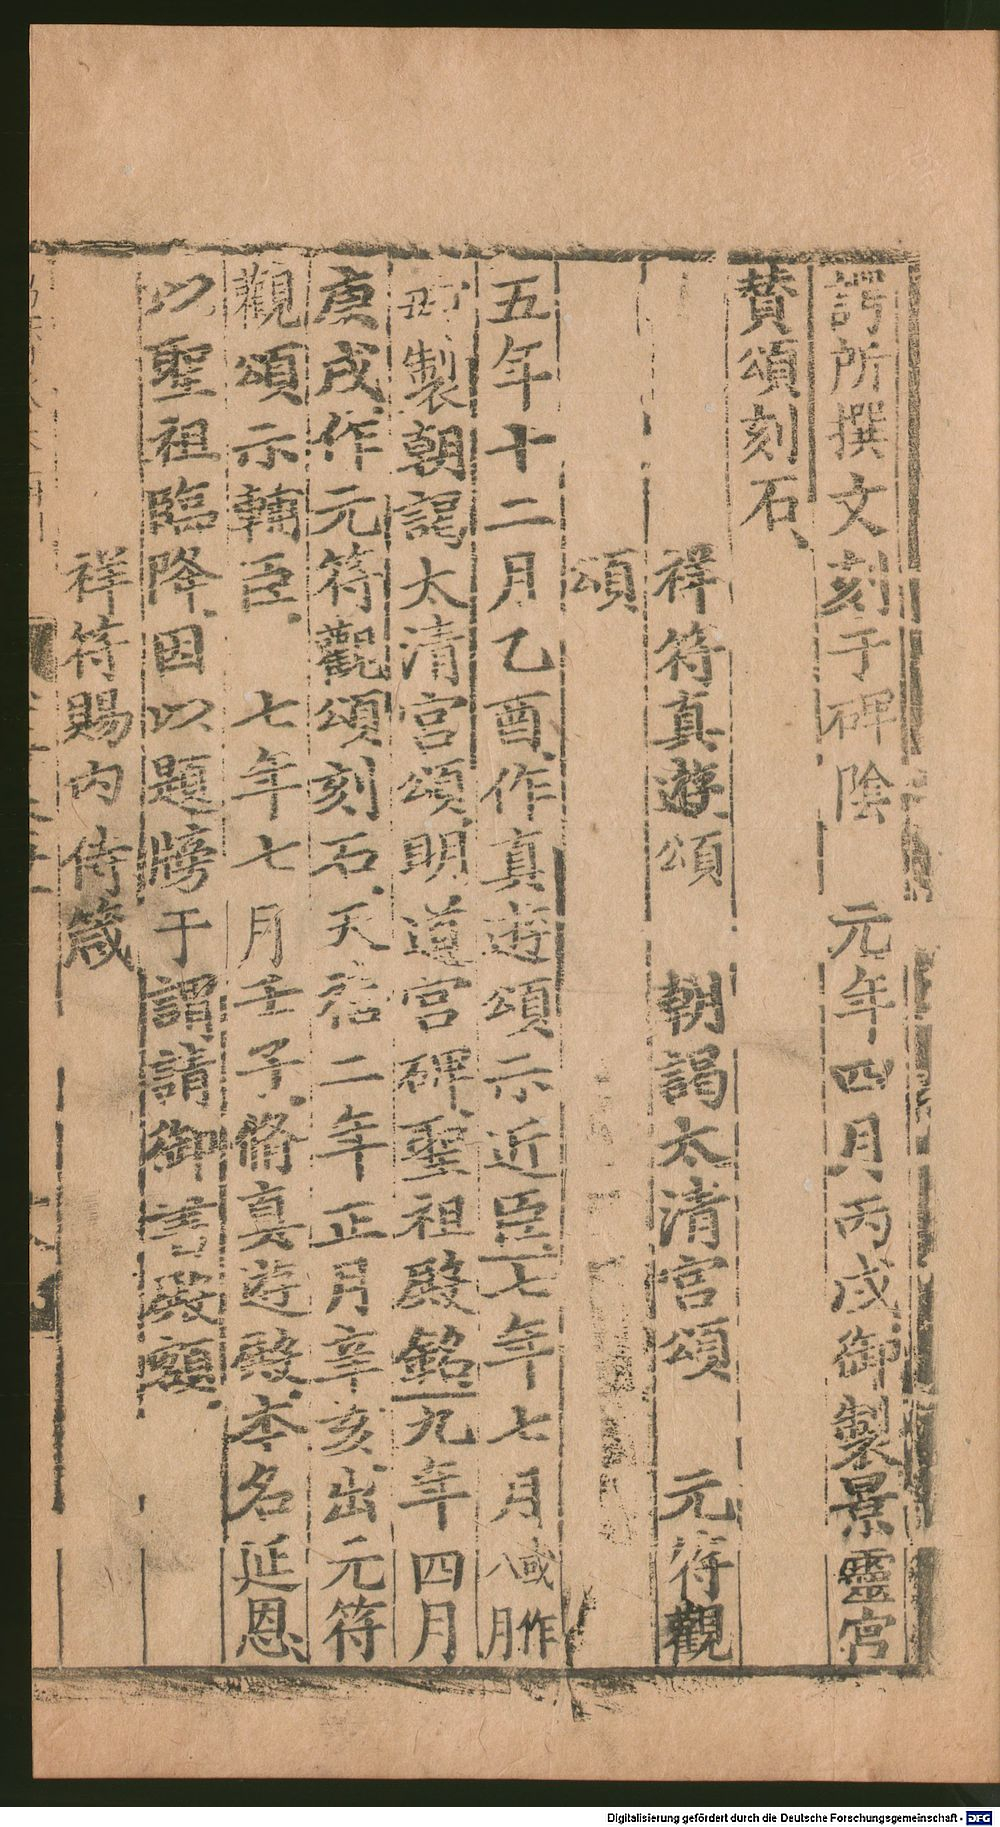 諤所撰文刻于碑陰　元年四月丙戌御製景靈宮
贊頌刻石、
祥符真遊頌　朝謁太清宮頌　元符觀
頌
五年十二月乙酉作真遊頌示近臣七年七月或作八月
製朝謁太清宮頌明道宮碑聖祖殿銘九年四月
庚戌作元符觀頌刻石天禧二年正月辛亥出元符
觀頌示輔臣　七年七月壬子脩真遊殿本名延恩
以聖祖臨降因以題牓于謂請御書殿額
祥符賜內侍箴
Digitalisierung gefördert durch die Deutsche Forschungsgemeinschaft - DFG